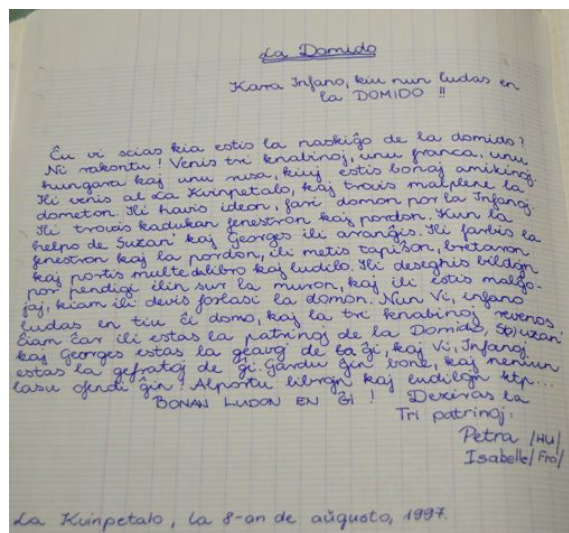 La Domido
Kara Infano, kiu nun ludas en
la DOMIDO !!
Ĉu vi scias kia estis la naskiĝo de la domido?
Ni rakontu! Venis tri knabinoj, unu franca, unu
hungara kaj unu rusa, kiuj estis bonaj amikinoj.
Ili venis al La Kvinpetalo, kaj trovis malplene la
dometon. Ili havis ideon, fari domon por la Infanoj.
Ili trovis kadukan fenestron kaj pordon. Kun la
helpo de Suzan' kaj Georges ili aranĝis. Ili farbis la
fenestron kaj la pordon, ili metis tapiŝon, bretaron
kaj portis multe da libro kaj ludilo. Ili deseghis bildojn
por pendigi ilin sur la muron, kaj ili estis malgo-
jaj, kiam ili devis forlasi la domon. Nun Vi, infano
ludas en tiu ĉi domo, kaj la tri knabinoj revenos
ĉiam ĉar ili estas la patrinoj de la Domido, Suzan
kaj Georges estas la geavoj de ĝi, kaj Vi, Infanoj
estas la gefratoj de ĝi. Gardu ĝin bone, kaj neniun
lasu ofendi ĝin! Alportu librojn kaj ludilojn ktp...
BONAN LUDON EN ĜI ! Deziras la
Tri patrinoj:
Petra /HU/
Isabelle/ Fra/
La Kvinpetalo, la 8-an de aŭgusto, 1997.